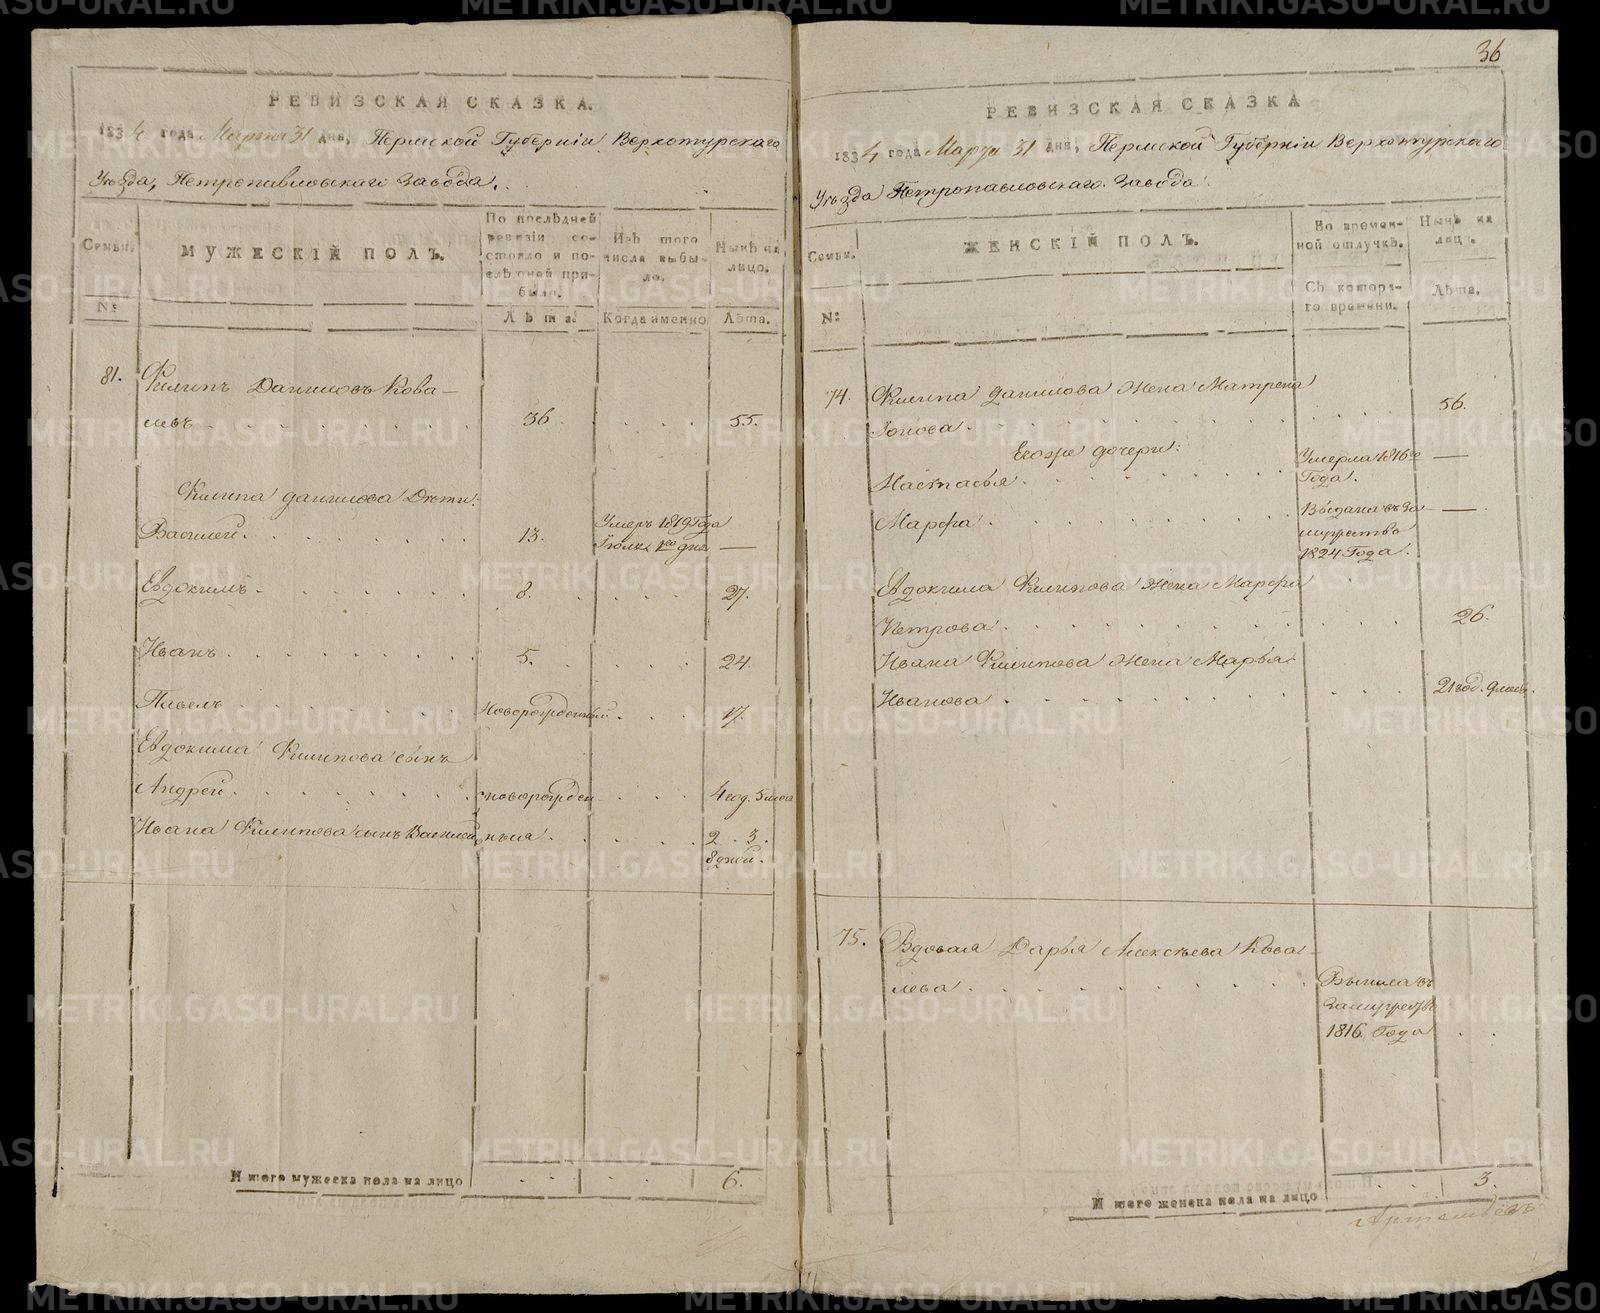 РЕВИЗСКАЯ СКАЗКА.
1834 года Марта 31 дня, Пермской Губернiи Верхотурскаго
Уѣзда, Петропавловскаго завода.
Семьи.
№
МУЖЕСКІЙ ПОЛЪ.
По послѣдней
ревизіи со-
стояло и по-
слѣ оной при-
было.
Лѣта.
Изъ того
числа выбы-
ло.
Когда именно
Нынѣ на
лицо.
Лѣта.
81. Филипъ Даниловъ Кова-
левъ 36 55.
Филипа данилова Дѣти:
Василей. 13. Умеръ 1819 Года
Iюля дня —
Евдокимъ. 8. 27.
Иванъ. 5. 24.
Павелъ новорожденный 17.
Евдокима Филипова сынъ
Андрей. новорожден- 4 год. 5 мес
Ивана Филипова сынъ Василей ныя. 2. 3.
8 дней.
И того мужеска пола на лицо 6.
36
РЕВИЗСКАЯ СКАЗКА
1834 года Марта 31 дня, Пермской Губернiи Верхотурскаго
Уѣзда Петропавловскаго завода.
Семьи.
№
ЖЕНСКІЙ ПОЛЪ.
Во времен-
ной отлучкѣ.
Съ котора-
го времени.
Нынѣ на
лицо.
Лѣта.
74. Филипа данилова жена Матрена
Iонова. 56.
Егоже дочери:
Настасья. Умерла 1816го —
Года.
Марфа. Выдана въ за- —
мужство
1824 Года.
Евдокима Филипова жена Марфа
Петрова. 26.
Ивана Филипова жена Марья
Иванова 21 год. 9 мес.
75. Вдовая Дарья Алексѣева Кова-
лева Вышла въ
замужство
1816 Года
И того женска пола на лицо 3.